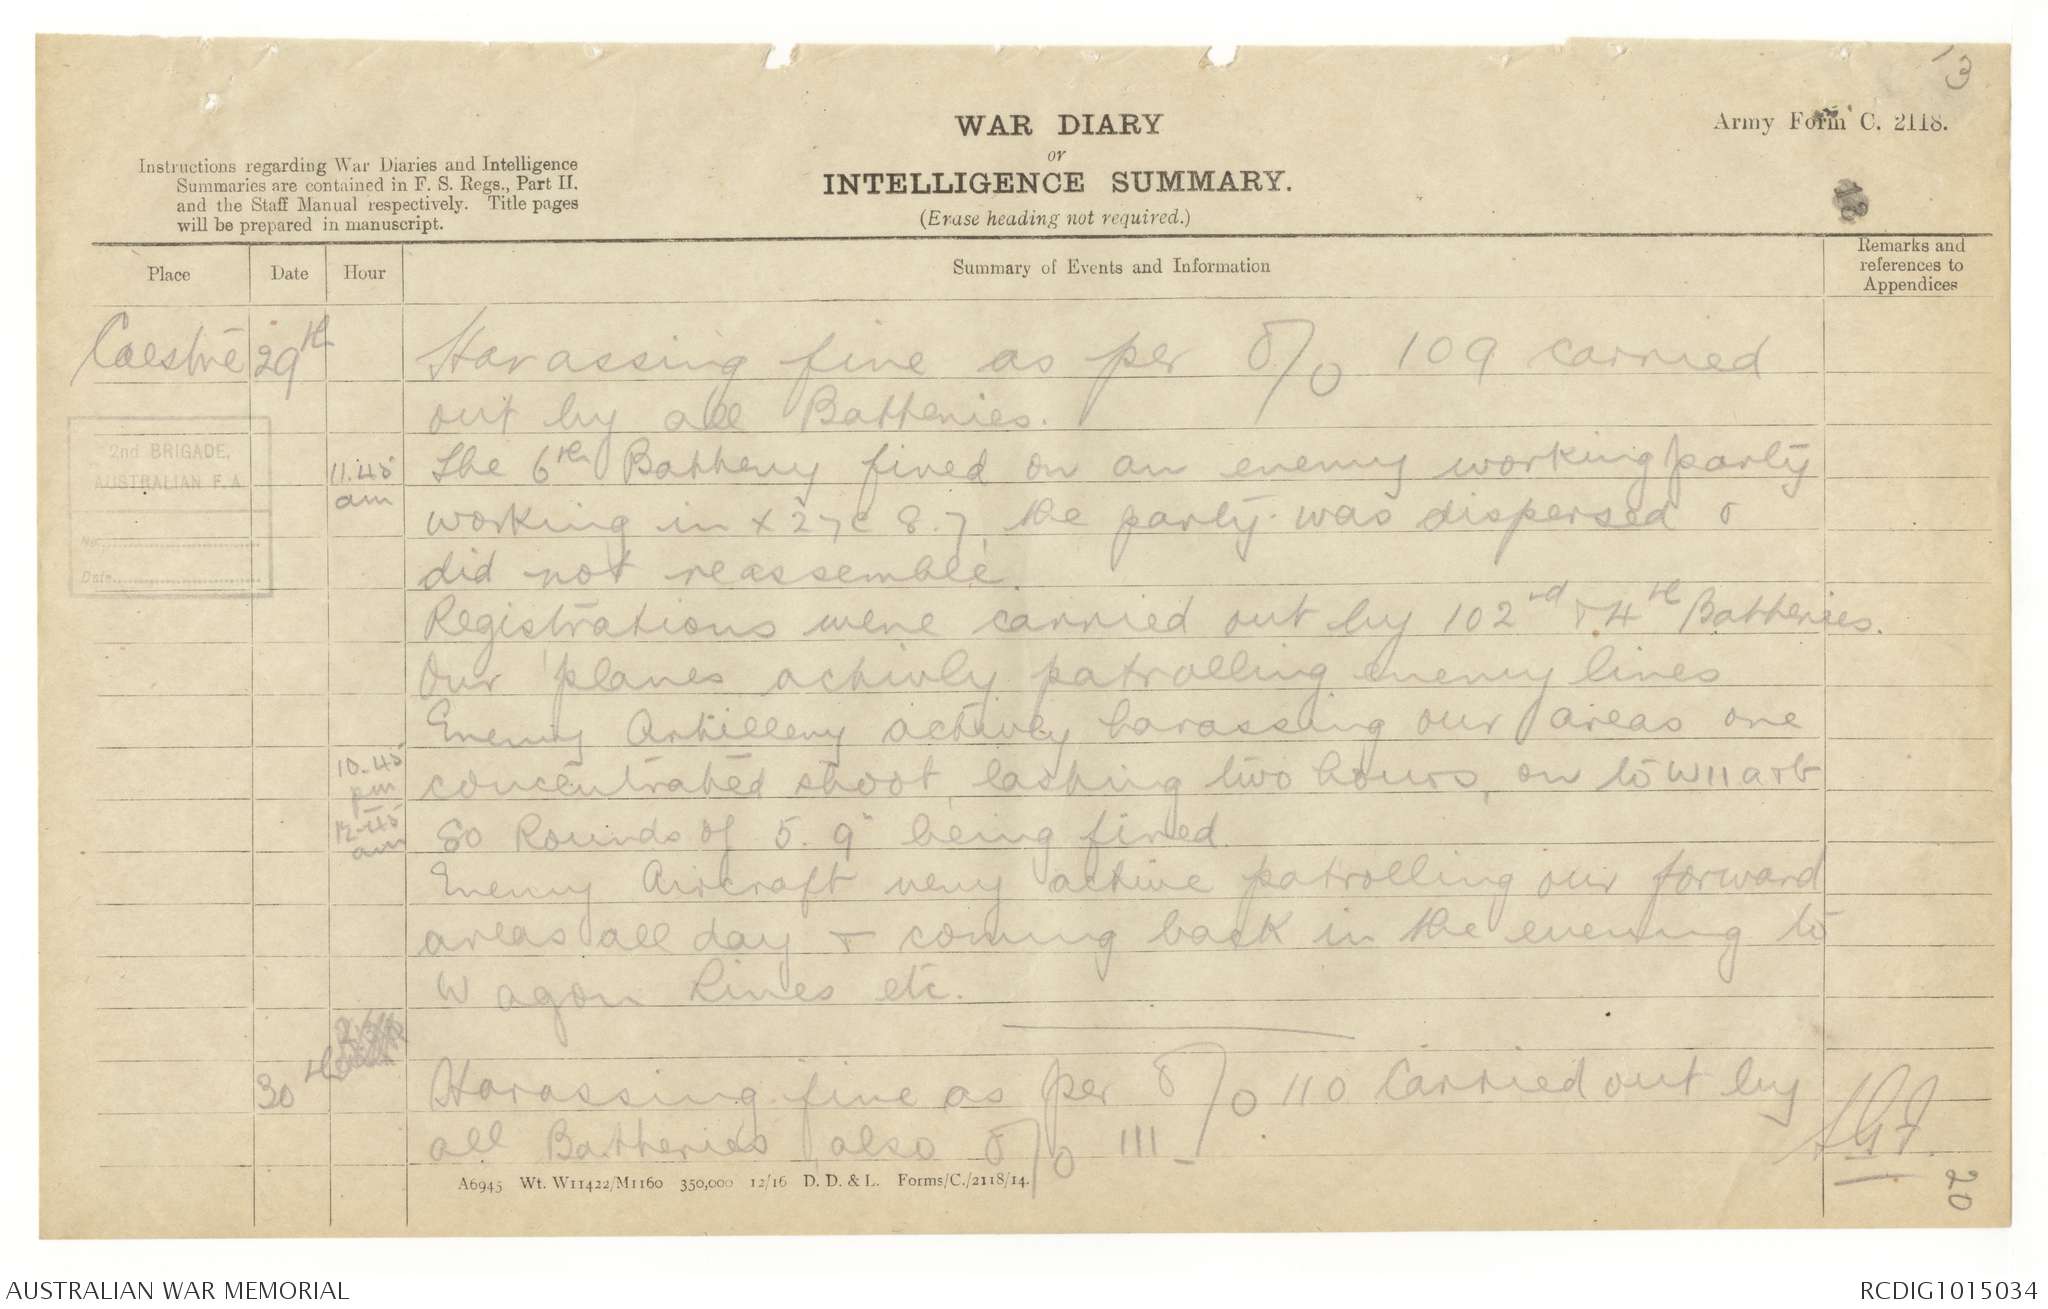 13
WAR DIARY
or
INTELLIGENCE SUMMARY.
(Erase heading not required.)
Army Form C. 2118.
Instructions regarding War Diaries and Intelligence
Summaries are contained in F. S. Regs., Part II.
and the Staff Manual respectively. Title pages
will be prepared in manuscript.
Place
Date
Hour
Summary of Events and Information
Remarks and
references to
Appendices
Caestre 29th Harassing fire as per O/O 109 carried
out by all Batteries.
2nd BRIGADE,
AUSTRALIAN F.A.
No.
Date
11.45 The 6th Battery fired on an enemy working party
am working in X 27c 8.7, the party was dispersed &
did not reassemble.
Registrations were carried out by 102nd & 4th Batteries.
Our 'planes activly patrolling enemy lines
Enemy Artillery activly harassing our areas one
10.45 pm concentrated shoot, lasting two hours, on to W11 a & b
12.45 am 80 Rounds of 5.9" being fired.
Enemy Aircraft very active patrolling our forward
areas all day & coming back in the evening to
Wagon Lines etc.
30th Harassing fire as per O/O 110 Carried out by
all Batteries also O/O 111
A6945 Wt. W11422/M1160 350,000 12/16 D. D. & L. Forms/C./2118/14.
20
AUSTRALIAN WAR MEMORIAL
RCDIG1015034